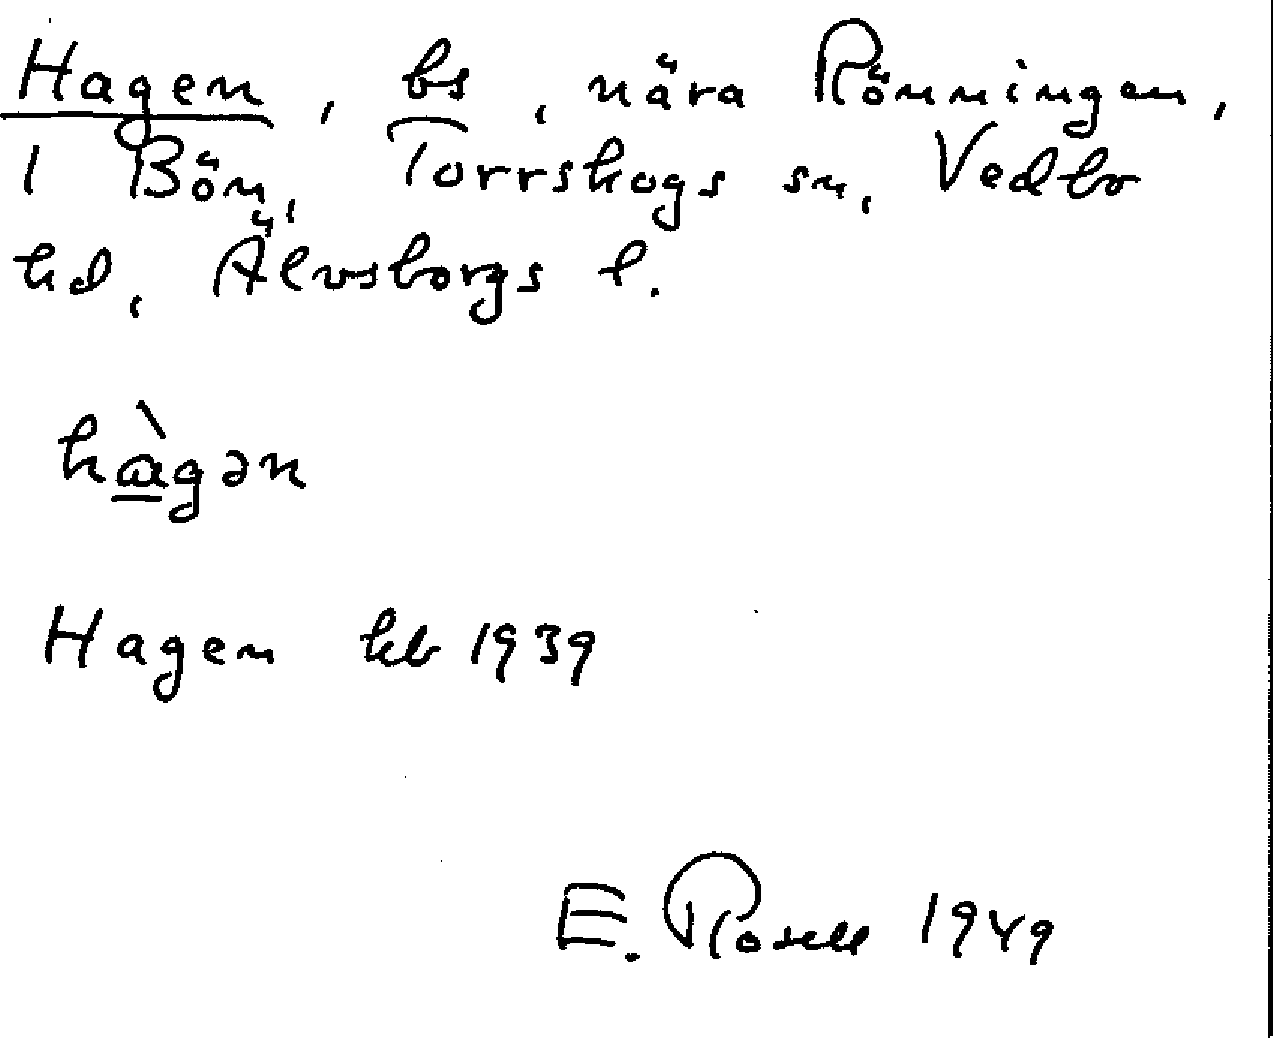 Hagen, bs, nära Rönningen,
1 Bön, Torrskogs sn, Vedbo
hd, Älvsborgs l.
hàgən
Hagen kb 1939
E. Rosell 1949